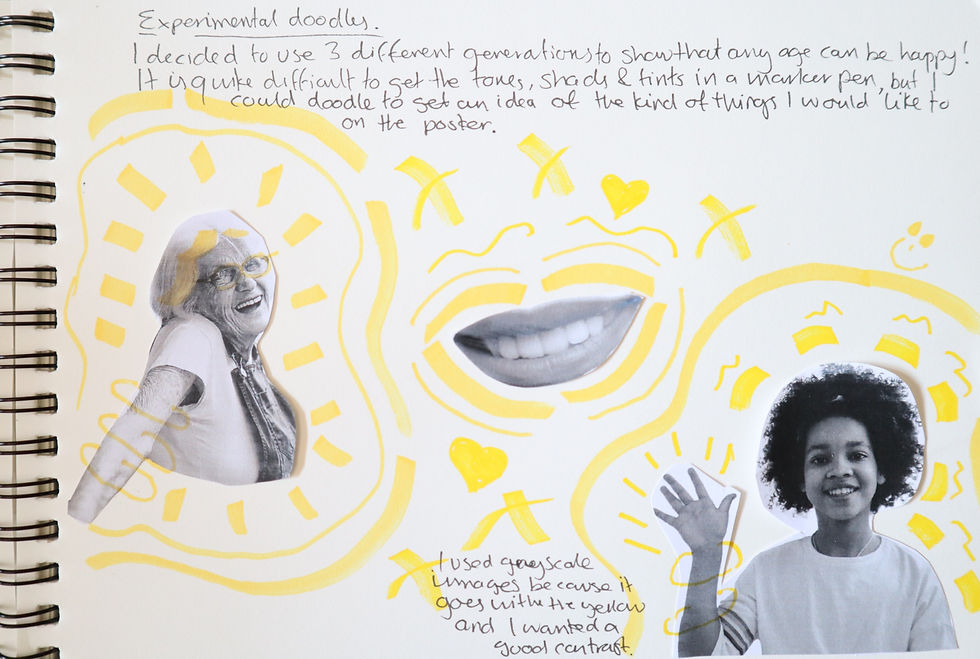 Experimental doodles.
I decided to use 3 different generations to show that any age can be happy!
It is quite difficult to get the tones, shads & tints in a marker pen, but I
could doodle to get an idea of the kind of things I would like to
on the poster.
I used greyscale
images because it
goes with the yellow
and I wanted a
good contrast.